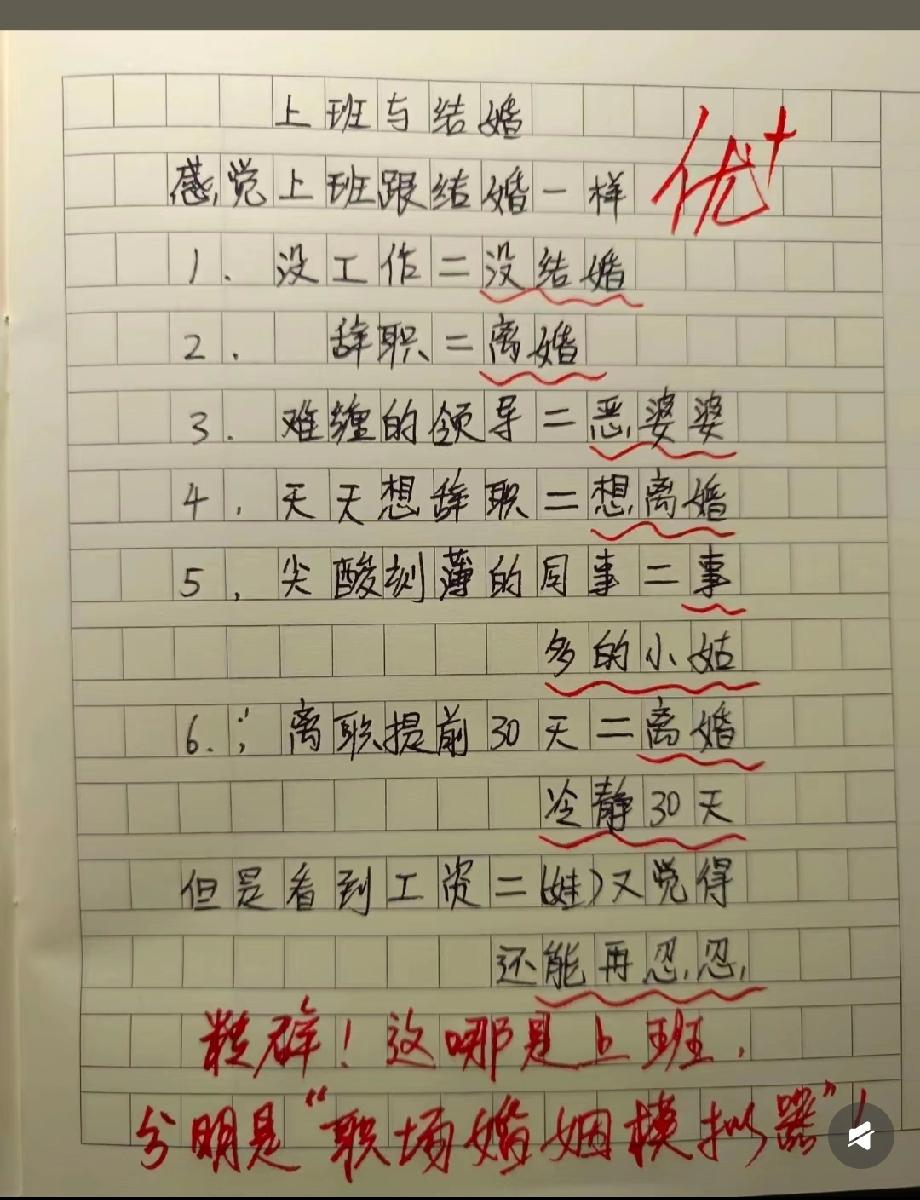 上班与结婚
优+
感觉上班跟结婚一样
1. 没工作=没结婚
2. 辞职=离婚
3. 难缠的领导=恶婆婆
4. 天天想辞职=想离婚
5. 尖酸刻薄的同事=事
多的小姑
6. 离职提前30天=离婚
冷静30天
但是看到工资=(娃)又觉得
还能再忍忍
精辟!这哪是上班,
分明是“职场婚姻模拟器”!